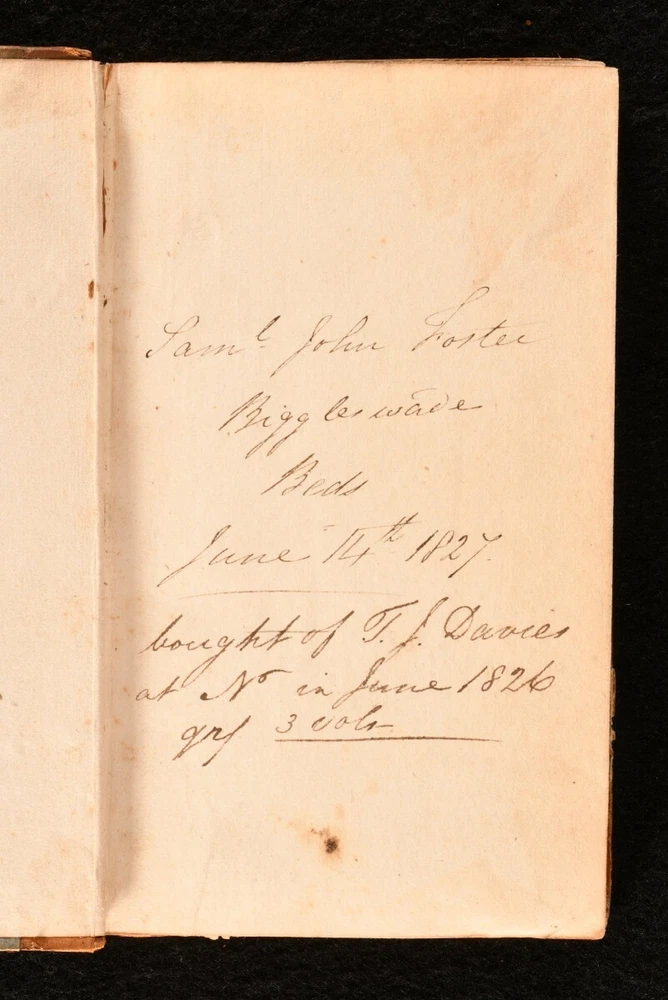 Saml John Foster
Biggleswade
Beds
June 14th 1827.
bought of T. J. Davies
at No in June 1826
3 vols